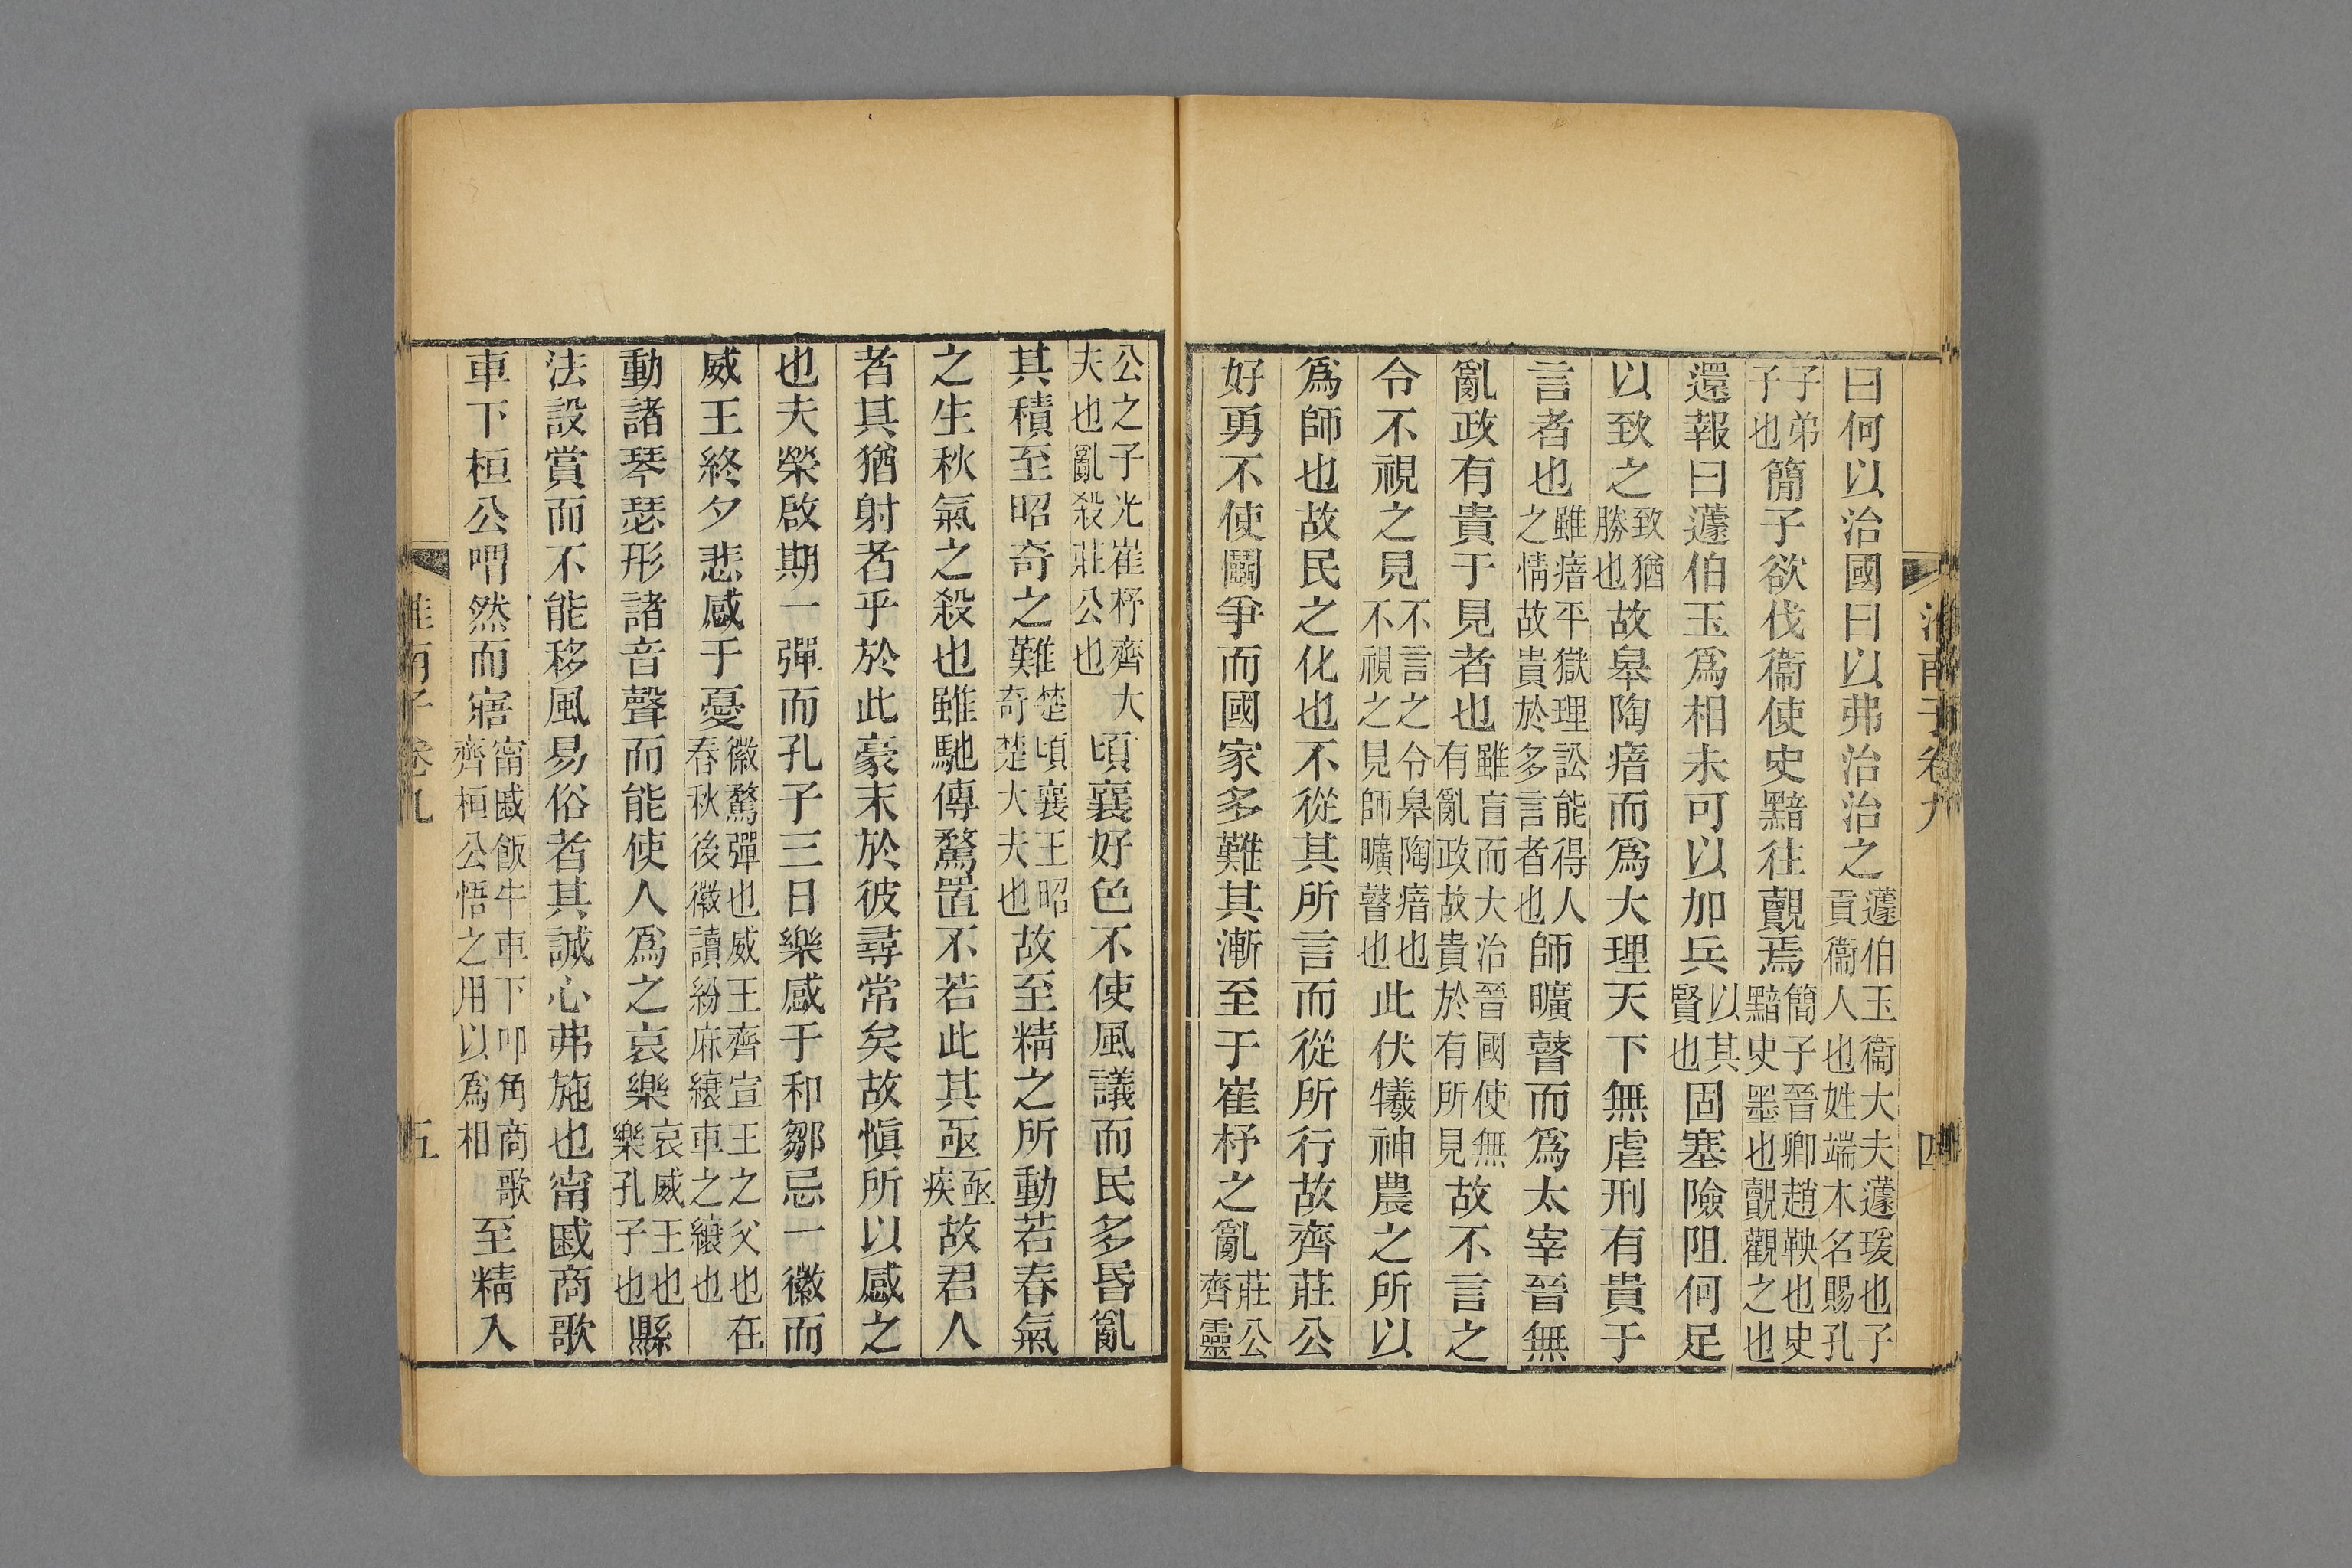 淮南子卷九 四
曰何以治國曰以弗治治之蘧伯玉衞大夫蘧瑗也子貢衞人也姓端木名賜孔
子弟子也簡子欲伐衞使史黯往覿焉簡子晉卿趙鞅也史黯史墨也覿觀之也
還報曰蘧伯玉爲相未可以加兵以其賢也固塞險阻何足
以致之致猶勝也故皋陶瘖而爲大理天下無虐刑有貴于
言者也雖瘖平獄理訟能得人之情故貴於多言者也師曠瞽而爲太宰晉無
亂政有貴于見者也雖盲而大治晉國使無有亂政故貴於有所見故不言之
令不視之見不言之令皋陶瘖也不視之見師曠瞽也此伏犧神農之所以
爲師也故民之化也不從其所言而從所行故齊莊公
好勇不使鬭爭而國家多難其漸至于崔杼之亂莊公齊靈
公之子光崔杼齊大夫也亂殺莊公也頃襄好色不使風議而民多昏亂
其積至昭奇之難楚頃襄王昭奇楚大夫也故至精之所動若春氣
之生秋氣之殺也雖馳傳騖置不若此其亟亟疾故君人
者其猶射者乎於此豪末於彼尋常矣故慎所以感之
也夫榮啟期一彈而孔子三日樂感于和鄒忌一徽而
威王終夕悲感于憂徽騖彈也威王齊宣王之父也在春秋後徽讀紛麻縗車之縗也
動諸琴瑟形諸音聲而能使人爲之哀樂哀威王也樂孔子也縣
法設賞而不能移風易俗者其誠心弗施也甯戚商歌
車下桓公喟然而寤甯戚飯牛車下叩角商歌齊桓公悟之用以爲相至精入
淮南子卷九 五